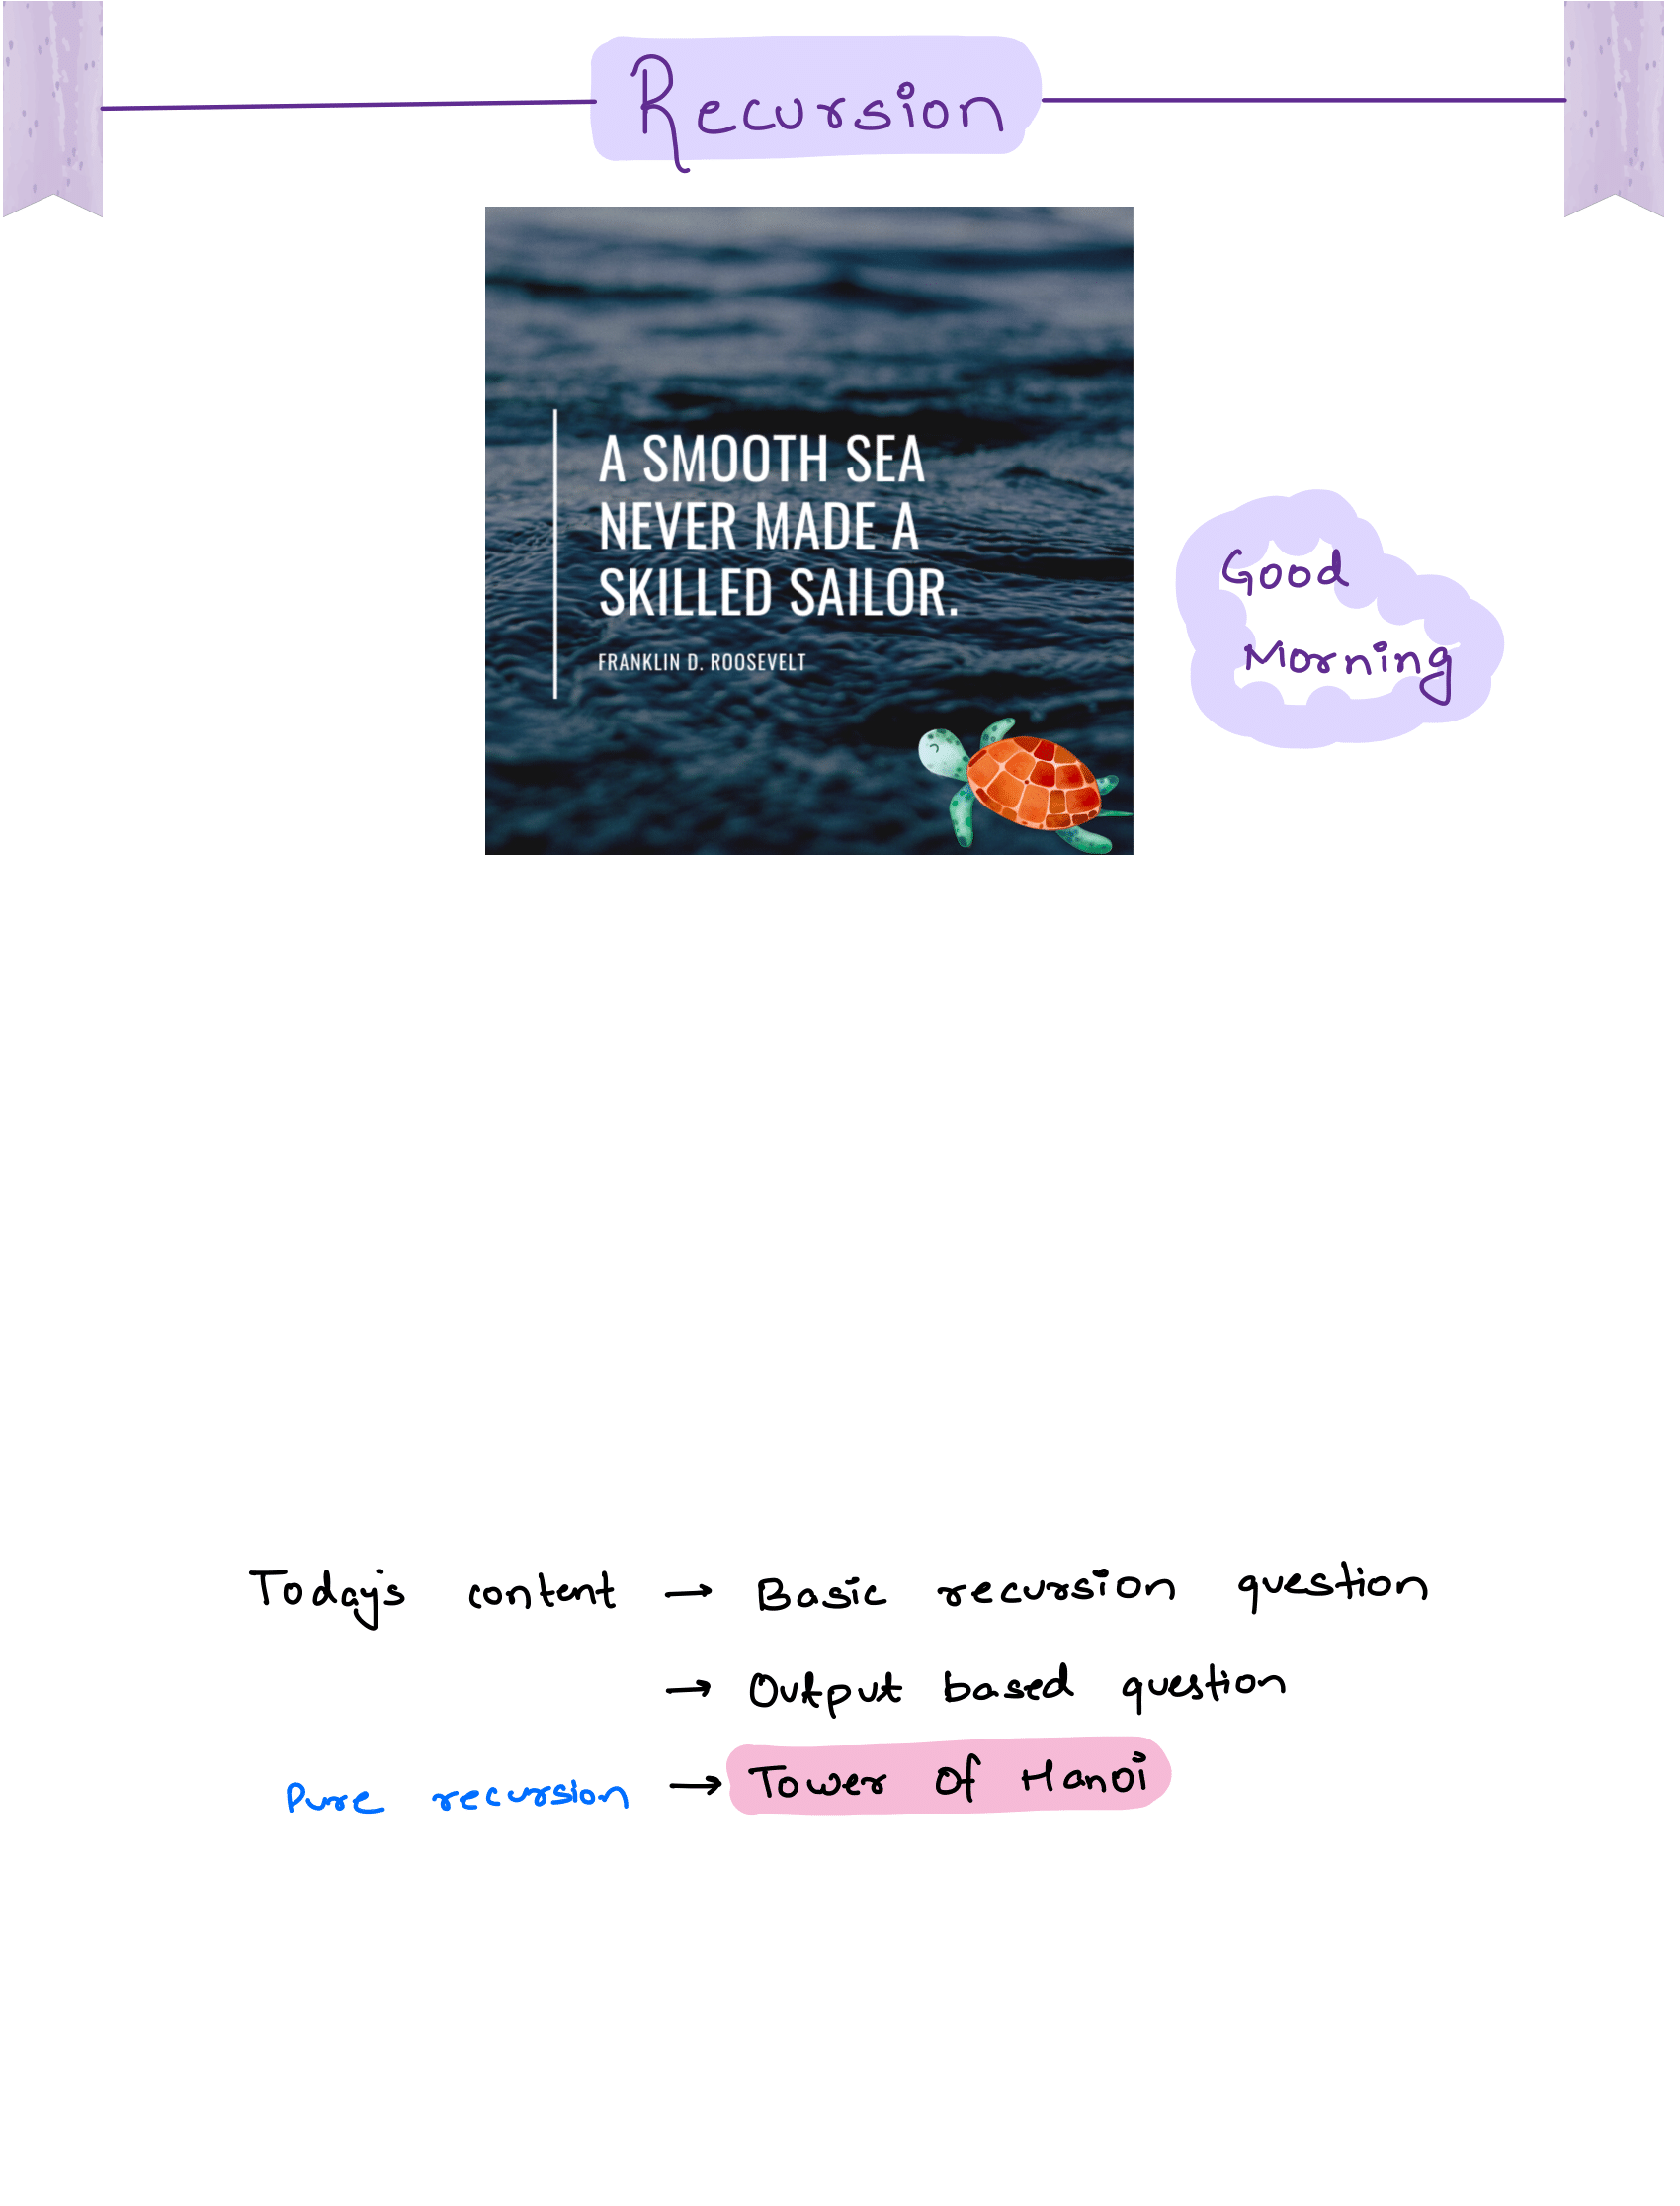 Recursion
A SMOOTH SEA
NEVER MADE A
SKILLED SAILOR.
FRANKLIN D. ROOSEVELT
Good
Morning
Today's content → Basic recursion question
→ Output based question
Pure recursion → Tower Of Hanoi